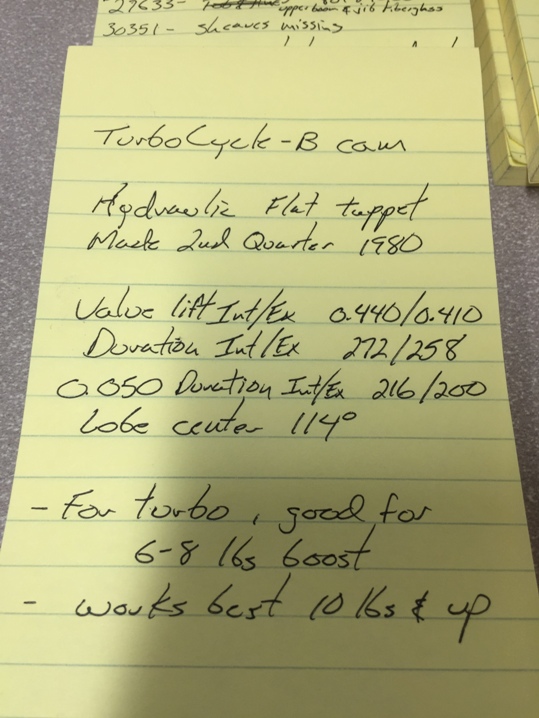 27633- upper boom & jib fiberglass
30351- sheaves missing
TurboCycle-B cam
Hydraulic Flat tappet
Made 2nd Quarter 1980
Valve lift Int/Ex 0.440/0.410
Duration Int/Ex 272/258
0.050 Duration Int/Ex 216/200
Lobe center 114°
- For turbo, good for
6-8 lbs boost
- works best 10 lbs & up